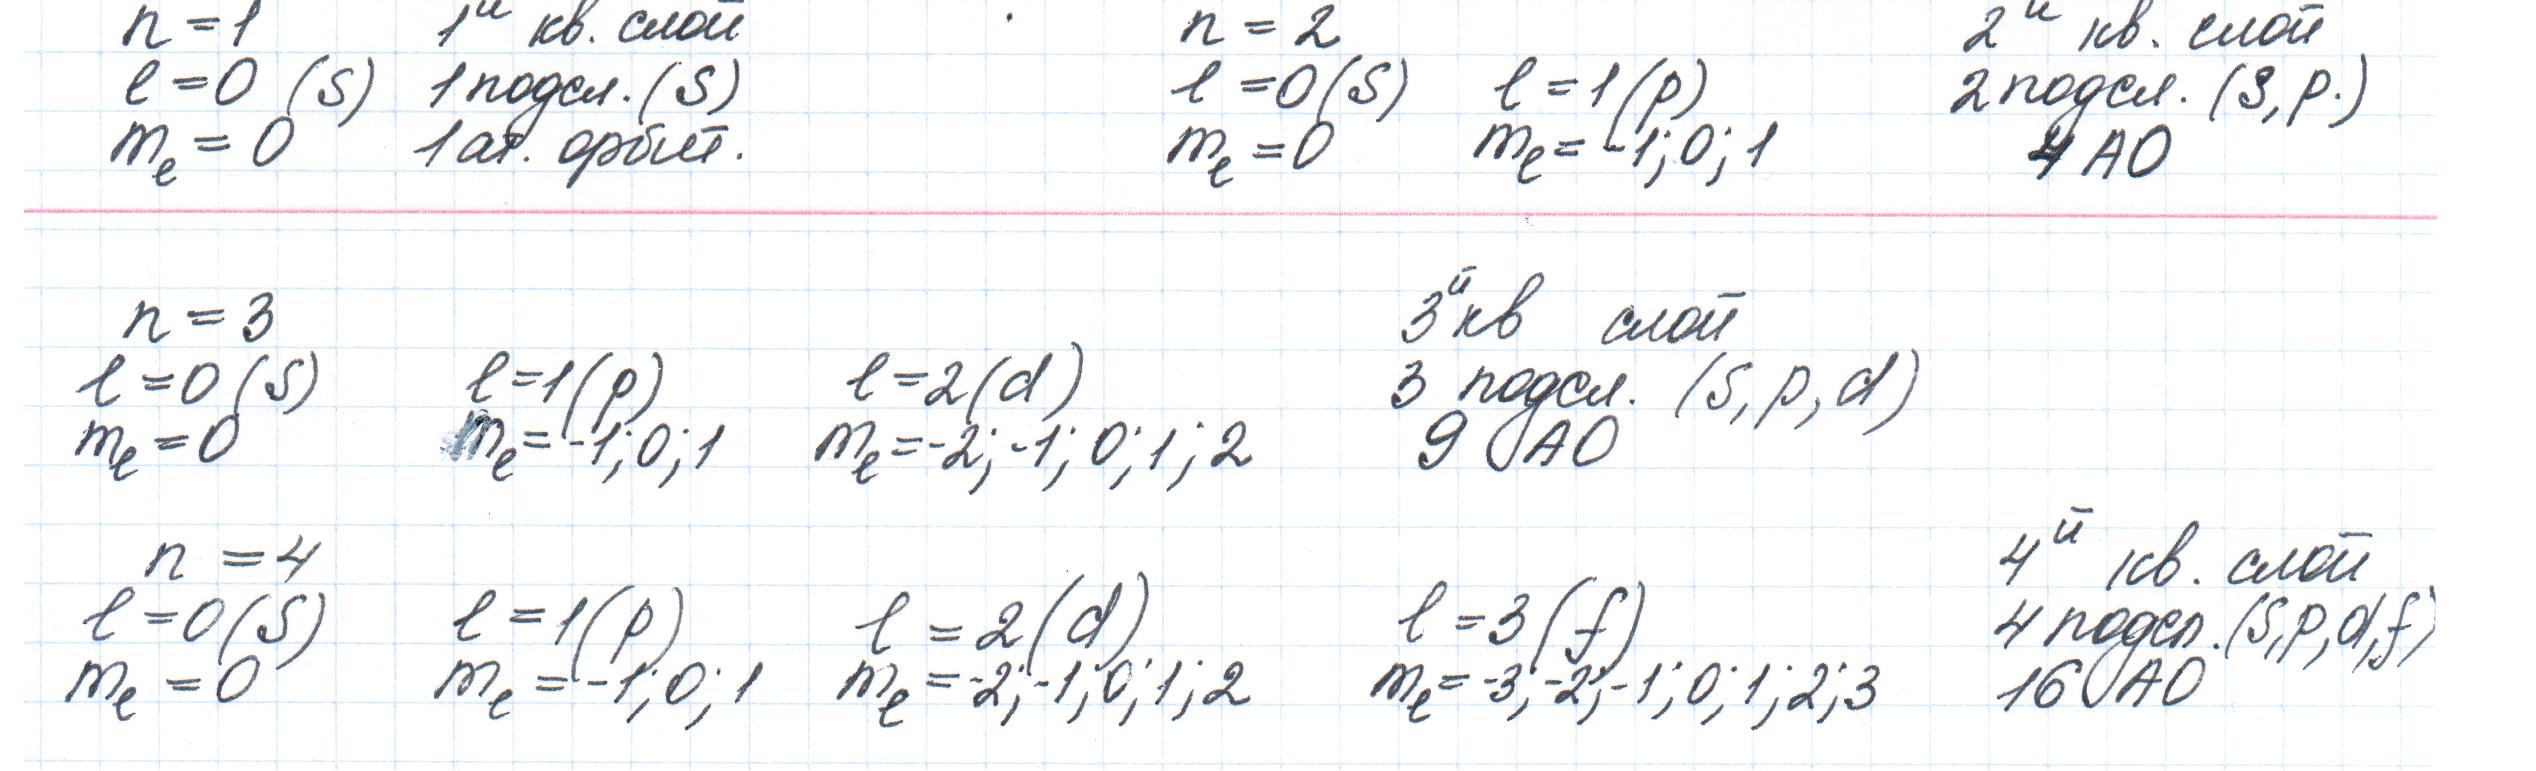 n = 1 1й кв. слой n = 2 2й кв. слой
l = 0 (s) 1 подсл. (s) l = 0 (s) l = 1 (p) 2 подсл. (s, p.)
mₑ = 0 1 ат. орбит. mₑ = 0 mₑ = -1; 0; 1 4 АО
n = 3 3й кв слой
l = 0 (s) l = 1 (p) l = 2 (d) 3 подсл. (s, p, d)
mₑ = 0 mₑ = -1; 0; 1 mₑ = -2; -1; 0; 1; 2 9 АО
n = 4 4й кв. слой
l = 0 (s) l = 1 (p) l = 2 (d) l = 3 (f) 4 подсл. (s, p, d, f)
mₑ = 0 mₑ = -1; 0; 1 mₑ = -2; -1; 0; 1; 2 mₑ = -3; -2; -1; 0; 1; 2; 3 16 АО